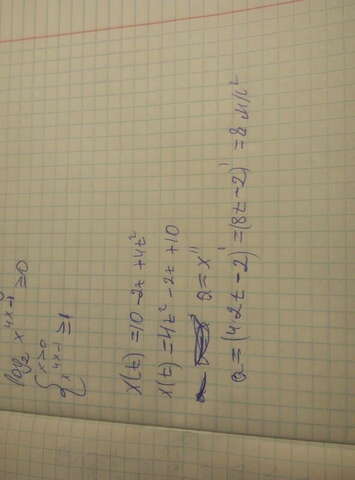 log₂ x⁴ˣ⁻¹ ≥ 0
{ x > 0
x⁴ˣ⁻¹ ≥ 1
x(t) = 10 - 2t + 4t²
x(t) = 4t² - 2t + 10
a = x''
a = (4·2t - 2)' = (8t - 2)' = 8 м/с²